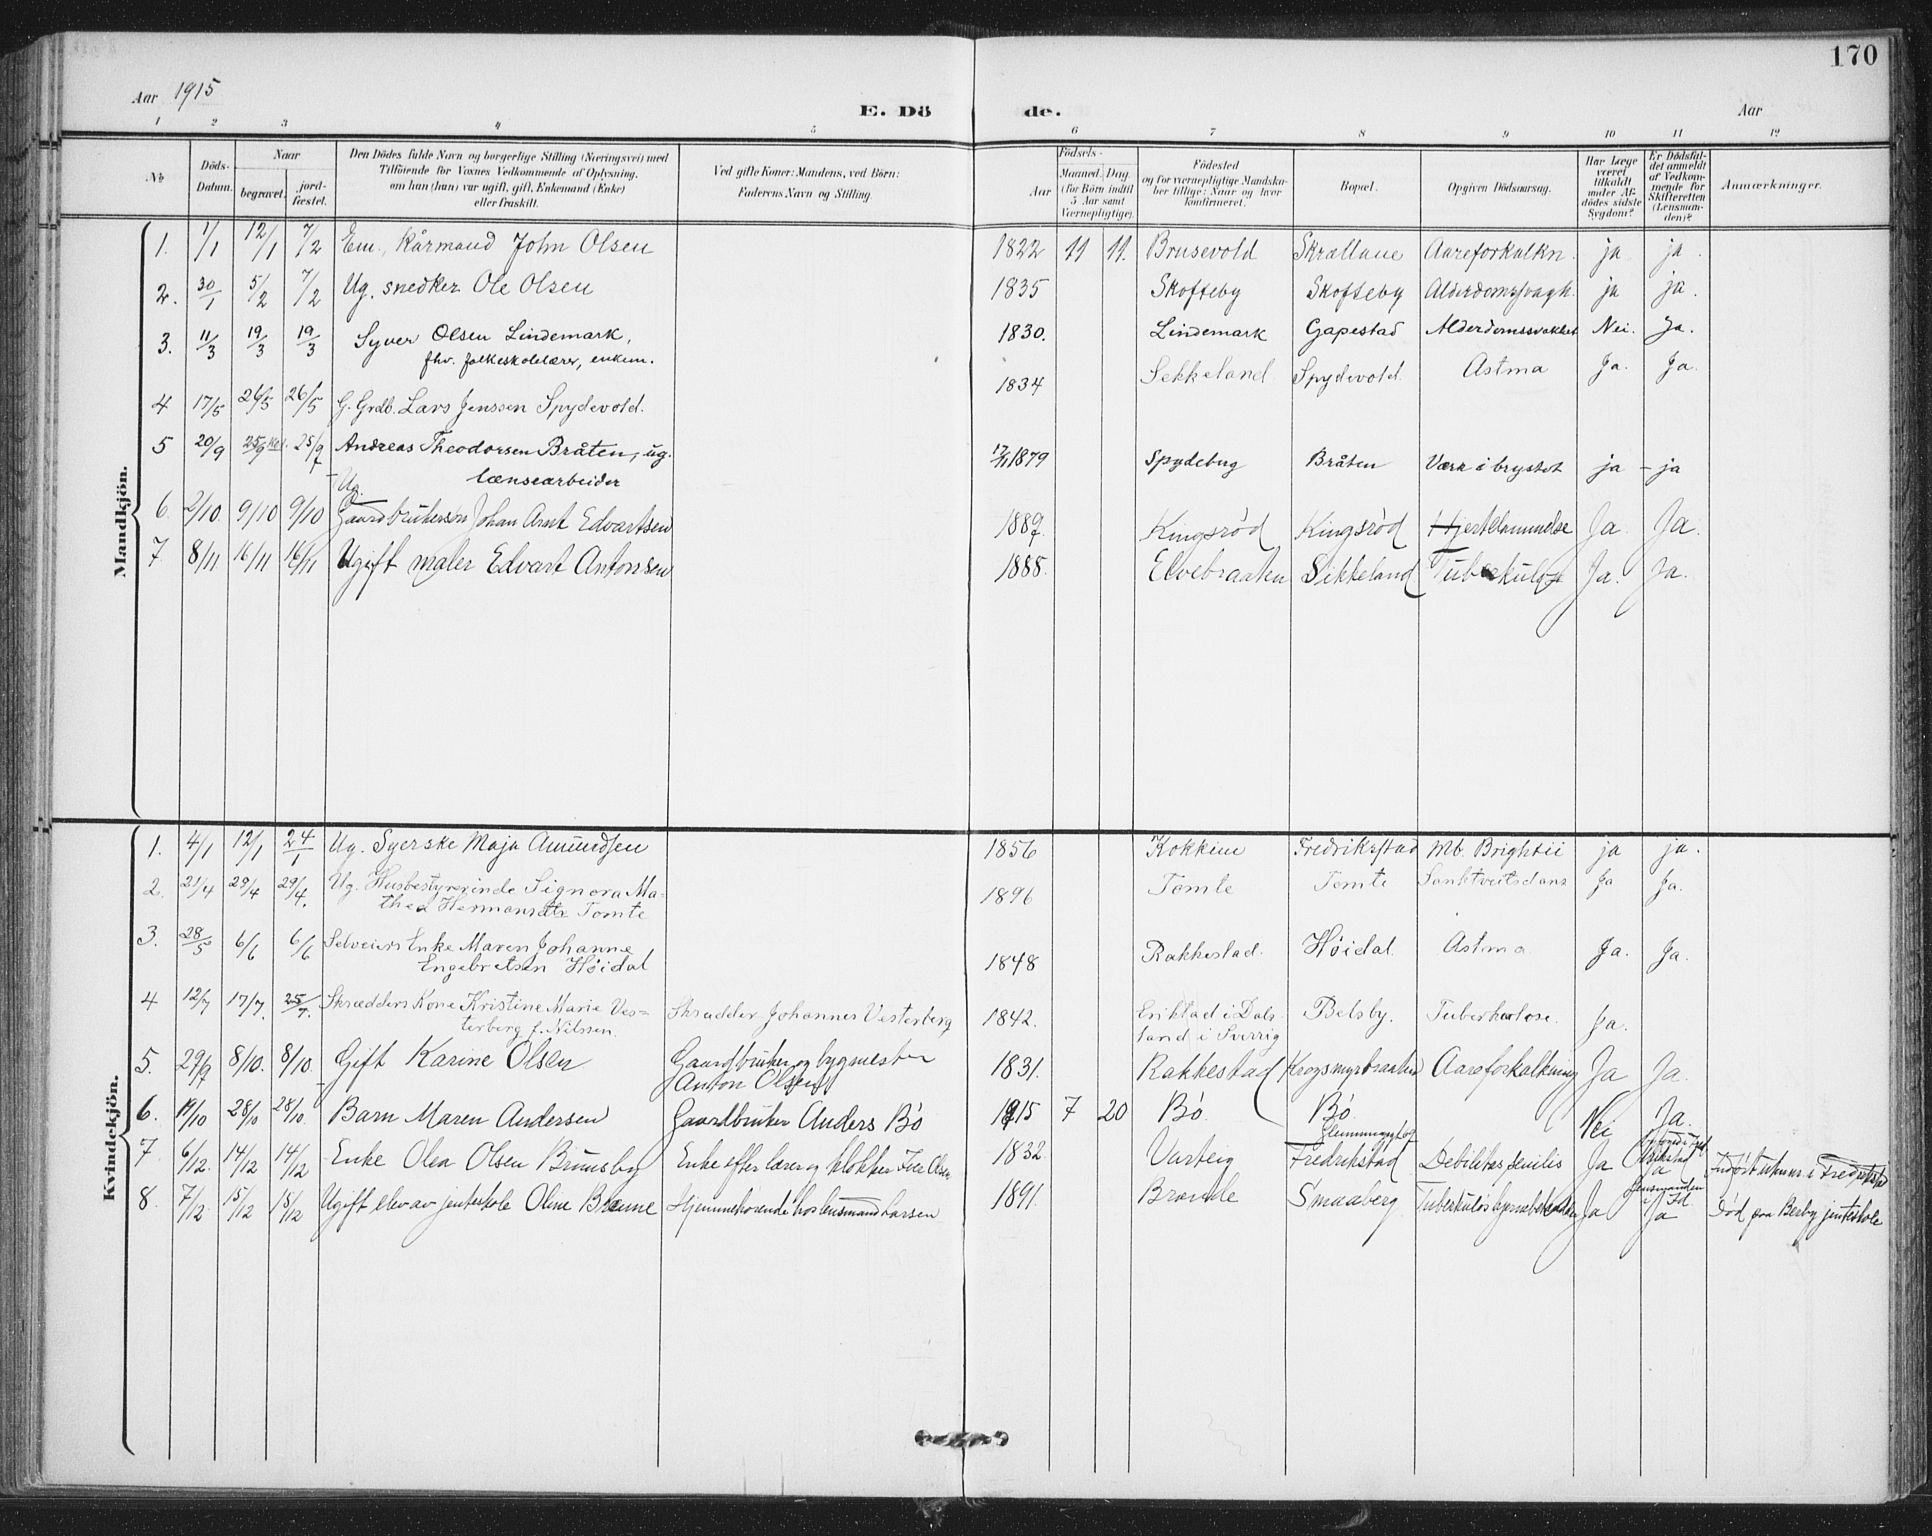 170
Aar 1915
E. Dö de.
Aar
1 2 3 4 5 6 7 8 9 10 11 12
No.
Döds-Datum.
Naar
begravet.
jord-fæstet.
Den Dödes fulde Navn og borgerlige Stilling (Næringsvei) med
Tilföiende for Voxnes Vedkommende af Oplysning,
om han (hun) var ugift, gift, Enkemand (Enke)
eller fraskilt.
Ved gifte Koner: Mandens, ved Börn:
Faderens Navn og Stilling.
Födsels-
Aar
Maaned. Dag.
(for Börn indtil
5 Aar samt
Værnepligtige).
Födested
og for værnepligtige Mandskaber tillige: Naar og hvor
konfirmeret.
Bopæl.
Opgiven Dödsaarsag.
Har Læge
været
tilkaldt
under Afdödes sidste
Sygdom?
Er Dödsfaldet anmeldt
af Vedkommende for
Skifteretten
(Lensmanden)?
Anmærkninger.
Mandkjön.
1. 1/1 12/1 7/2 Em. Kårmand John Olsen 1822 11 11. Brusevold Skrællane Aareforkalkn. ja ja.
2. 30/1 5/2 7/2 Ug. snedker Ole Olsen 1835 Skofteby Skofteby Alderdomssvagh. ja ja.
3. 11/3 19/3 19/3 Syver Olsen Lindemark,
fhv. folkeskolelærer, enkem. 1830. Lindemark Gapestad Alderdomssvakhet Nei. Ja.
4 17/5 26/5 26/5 G. Grdb. Lars Jenssen Spydevold. 1834 Sekkeland. Spydevold. Astma Ja. Ja.
5 20/9 25/9 25/9 Andreas Theodorsen Bråten, ug.
lænsearbeider 17/11 1879 Spydeberg Bråten Værk i brystet ja – ja
6. 2/10 9/10 9/10 Ug.
Gaardbrukersøn Johan Arnt Edvartsen 1889. Kingsrød Kingsrød Hjertelammelse Ja. Ja.
7 8/11 16/11 16/11 Ugift maler Edvart Antonsen 1888. Elvebraaten Sikkeland Tuberkulose Ja. Ja.
Kvindekjön.
1. 4/1 12/1 24/1 Ug. Syerske Maja Amundsen 1856 Kokkim Fredrikstad Mb. Brightii ja ja.
2. 21/4 29/4 29/4. Ug. Husbestyrerinde Signora Mathea Hermansdtr Tomte 1896 Tomte Tomte Sanktveitsdans Ja Ja.
3. 28/5 6/6 6/6 Selveiers Enke Maren Johanne
Engebretsen Høidal 1848 Rakkestad. Høidal. Astma Ja. Ja.
4 12/7 17/7. 25/7. Skrædders Kone Kristine Marie Vesterberg f. Nilssen. Skrædder Johannes Vesterberg 1842. Erikstad i Dalsland i Sverrig Belsby. Tuberkulose. Ja.
5. 29/9 8/10. 8/10. Gift Karine Olsen Gaardbruker og bygmester
Anton Olsen 1831. Rakkestad Krogsmyrbraaten Aareforkalkning Ja Ja.
6. 19/10 28/10 28/10. Barn Maren Andersen Gaardbruker Anders Bö 1915 7 20 Bö. Bö. Nei Ja.
7 6/12. 14/12 14/12 Enke Olea Olsen Brunsby Enke efter lærer og klokker Iver Olsen 1832 Varteig Fredrikstad Debilitas senilis Ja Ja
8. 7/12 15/12 15/12 Ugift elev av jenteskole Oline Brenne Hjemmehörende hos lensmand Larsen 1891. Brænde Smaaberg Tuberkuløs hjernebetændelse Ja lensmanden i Id Ja Död paa Berby jenteskole